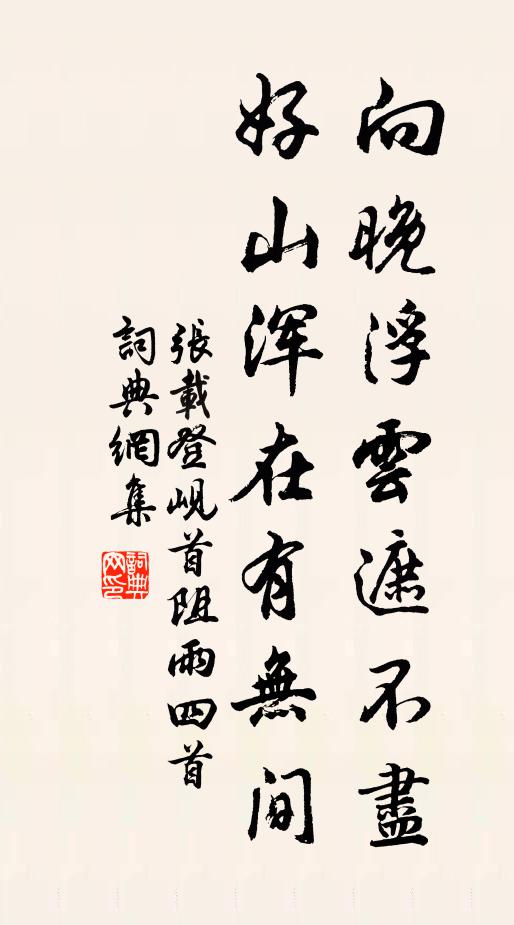 向晚浮雲遮不盡
好山渾在有無間
張載登峴首阻雨四首
詞典網集
詞典網印